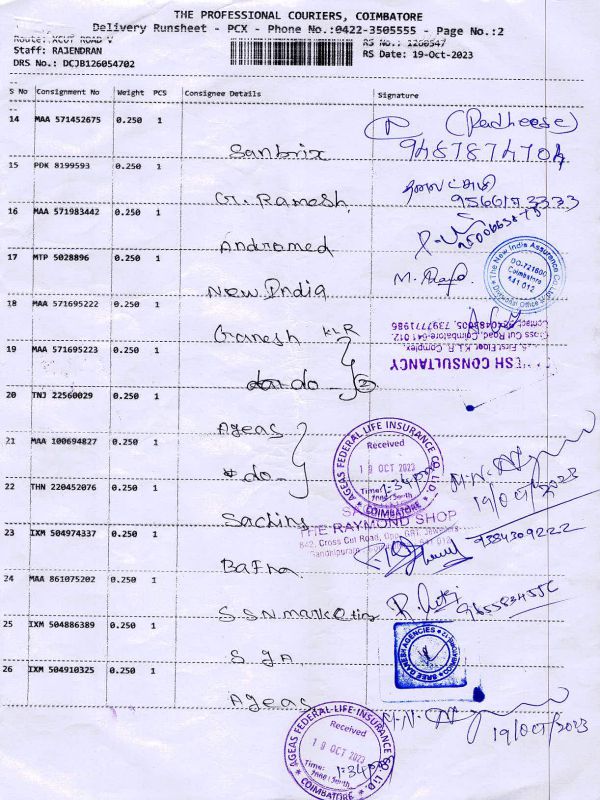 THE PROFESSIONAL COURIERS, COIMBATORE
Delivery Runsheet - PCX - Phone No.:0422-3505555 - Page No.:2
Route: XCUT ROAD V
RS No.: 1260547
Staff: RAJENDRAN
RS Date: 19-Oct-2023
DRS No.: DCJB126054702
S No Consignment No Weight PCS Consignee Details Signature
14 MAA 571452675 0.250 1
(Radheese)
Sanbrix 9487874704
15 PDK 8199593 0.250 1
G. Ramesh 9566173333
16 MAA 571983442 0.250 1
Andromed
17 MTP 5028896 0.250 1
New India M.
The New India Assurance Co.
DO-721600
Coimbatore
641 012
Divisional Office
18 MAA 571695222 0.250 1
Ganesh KLR
19 MAA 571695223 0.250 1
do 2
Contact: 7397777986
Cross Cut Road, Coimbatore-641 012.
First Floor, K.L.R. Complex,
ESH CONSULTANCY
20 TNJ 22560029 0.250 1
Ageas
21 MAA 100694827 0.250 1
do
AGEAS FEDERAL LIFE INSURANCE CO. LTD.
Received
19 OCT 2023
Time: 1:34pm
COIMBATORE
M.N.
19/OCT/2023
22 THN 220452076 0.250 1
Sachins
THE RAYMOND SHOP
642, Cross Cut Road, Opp. GRT Jewellers,
Gandhipuram, 641 012
23 IXM 504974337 0.250 1
9384309222
Bafna
24 MAA 861075202 0.250 1
S.S.N marketing
25 IXM 504886389 0.250 1
SREE GANESH AGENCIES
COIMBATORE-12
S J A
26 IXM 504910325 0.250 1
Ageas
M.N.
19/OCT/2023
AGEAS FEDERAL LIFE INSURANCE CO. LTD.
Received
19 OCT 2023
Time: 1:34pm
COIMBATORE